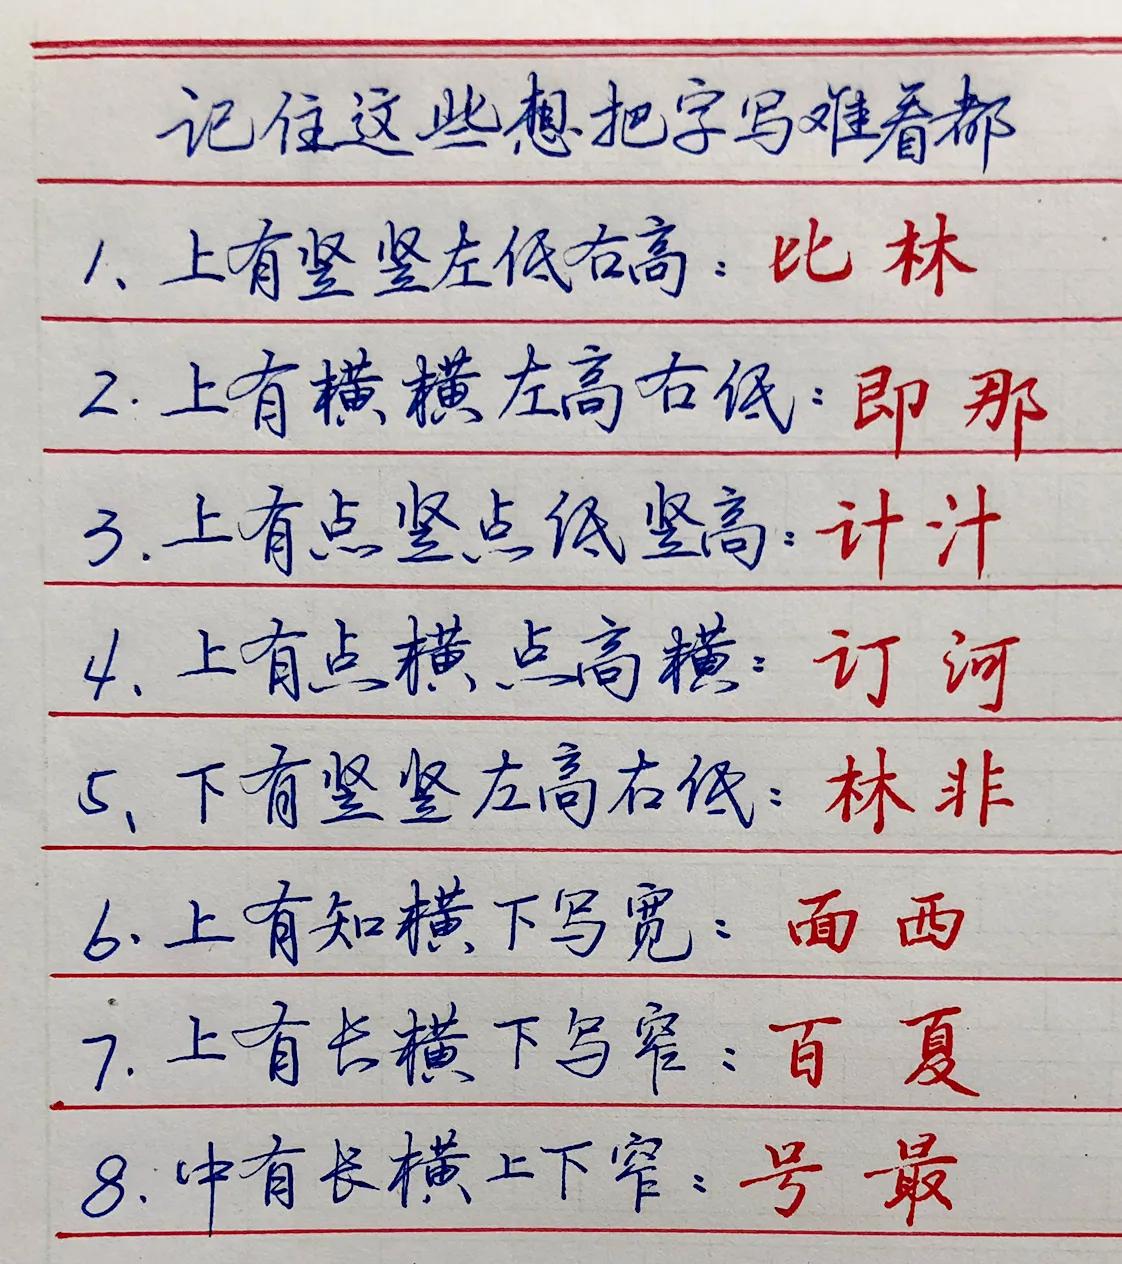 记住这些想把字写难看都
1、上有竖竖左低右高：比 林
2.上有横横左高右低：即 那
3.上有点竖点低竖高：计 汁
4、上有点横点高横：订 河
5、下有竖竖左高右低：林 非
6.上有知横下写宽：面 西
7.上有长横下写窄：百 夏
8.中有长横上下窄：号 最